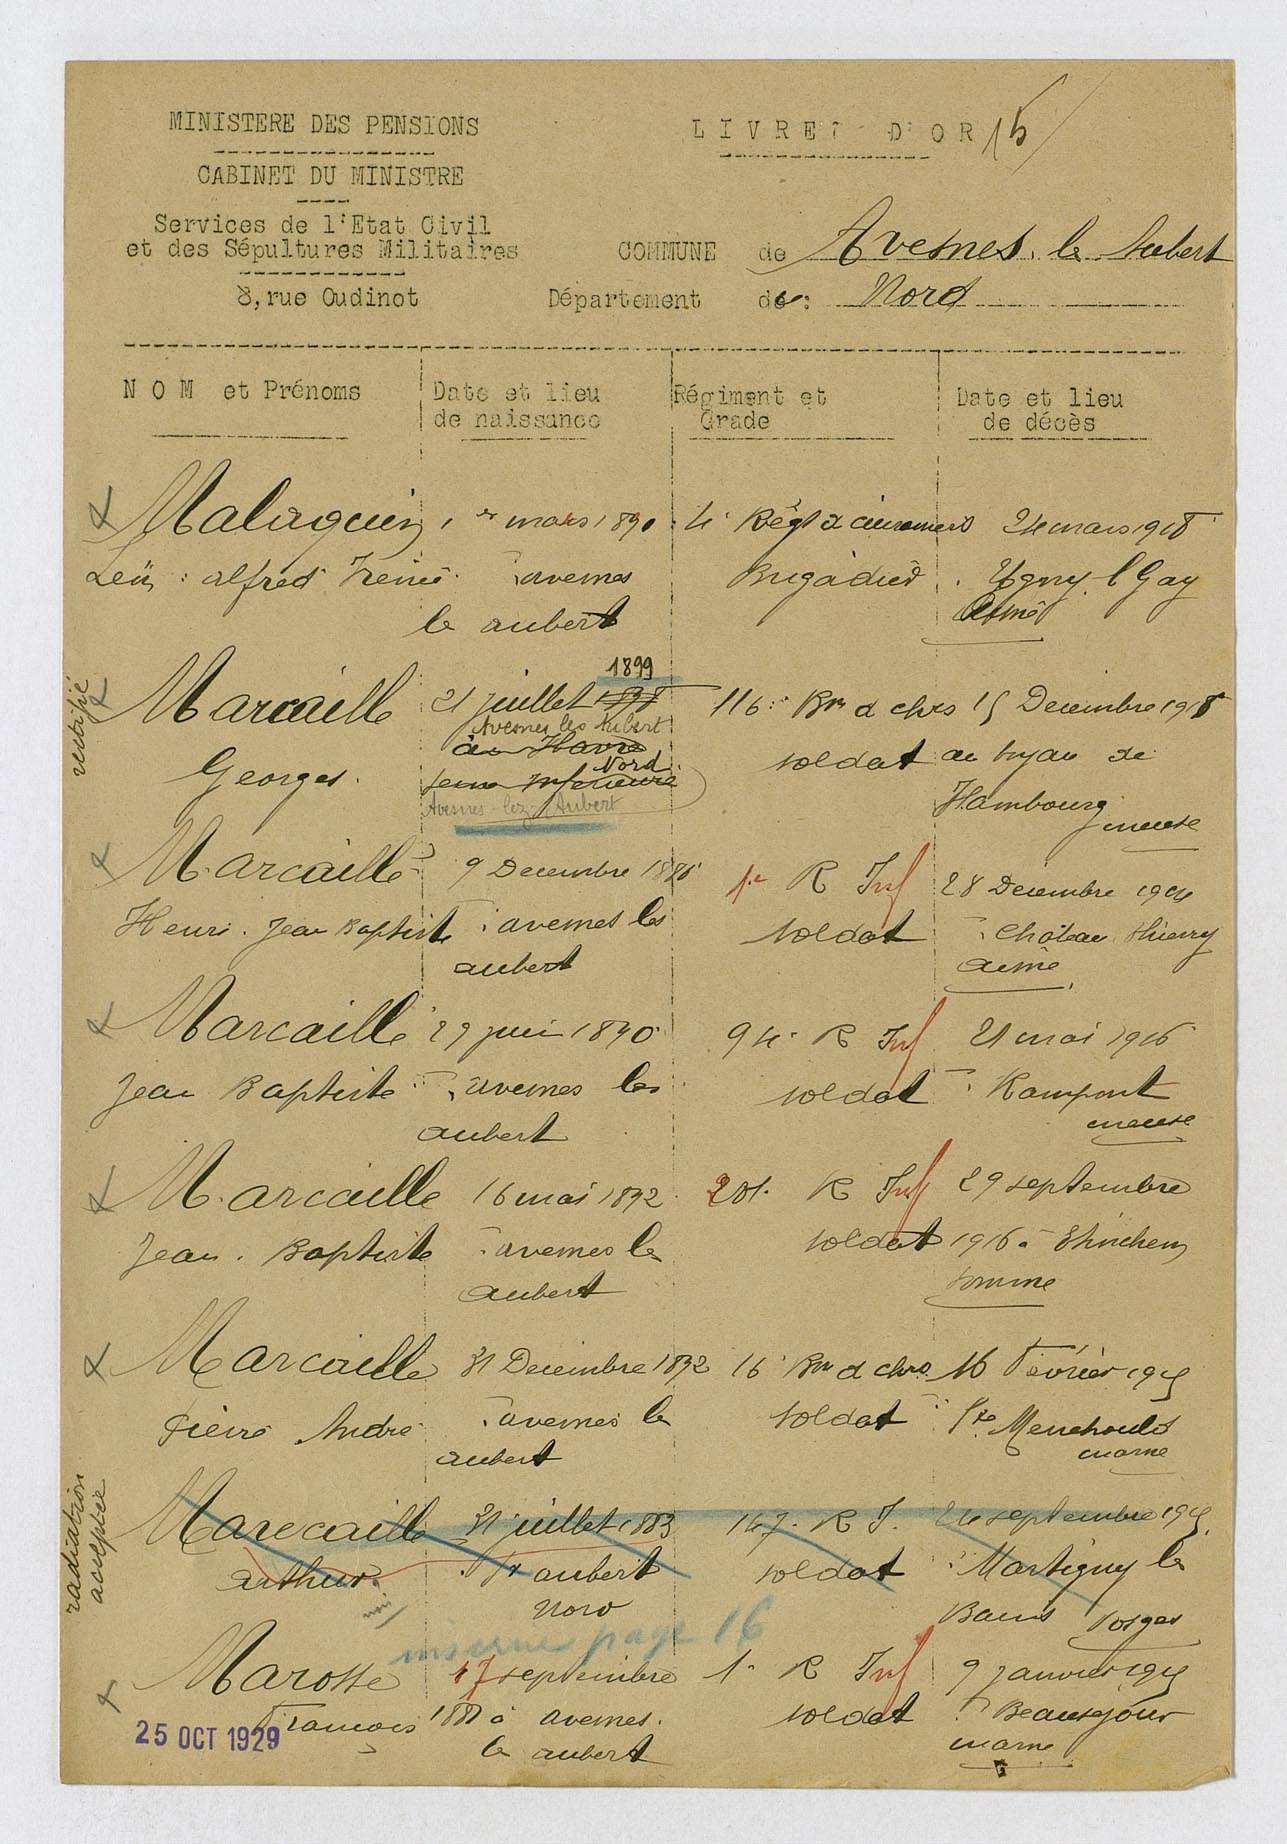 MINISTERE DES PENSIONS
CABINET DU MINISTRE
Services de l'Etat Civil
et des Sépultures Militaires
8, rue Oudinot
LIVRET D'OR 15
COMMUNE de Avesnes le Aubert
Département du: Nord
NOM et Prénoms
Date et lieu
de naissance
Régiment et
Grade
Date et lieu
de décès
Malaquin 1er mars 1890 4e Régt Cuirassiers 24 mars 1918
Léon alfred Irénée à avesnes Brigadier Ugny l Gay
le aubert Aisne
rectifié
1899
Marcaille 21 juillet 1898 116e Bon d chrs 15 Decembre 1918
Avesnes les Aubert
au Havre
Georges Nord soldat au de
Seine Inférieure
Avesnes-lez-Aubert Hambourg
meuse
Marcaille 9 Decembre 1886 1er R Inf 28 Decembre 1914
Henri Jean Baptiste à avesnes les soldat à Château thierry
aubert aisne
Marcaille 29 juin 1890 94e R Inf 21 mai 1916
Jean Baptiste à avesnes les soldat à Rampont
aubert meuse
Marcaille 16 mai 1892 201e R Inf 29 septembre
Jean Baptiste à avesnes le soldat 1916 à Etinehem
aubert somme
Marcaille 31 Decembre 1892 16e Bon d chrs 16 Février 1915
Pierre André à avesnes le soldat à Ste Menehould
aubert marne
radiation
acceptée
Marecaille 31 juillet 1883 147e R I. 24 septembre 1915
arthur à St aubert soldat à Martigny les
Nord Bains Vosges
inscrire page 16
Marosse 17 septembre 1e R Inf 9 janvier 1915
François 1881 à avesnes soldat à Beauséjour
le aubert marne
25 OCT 1929